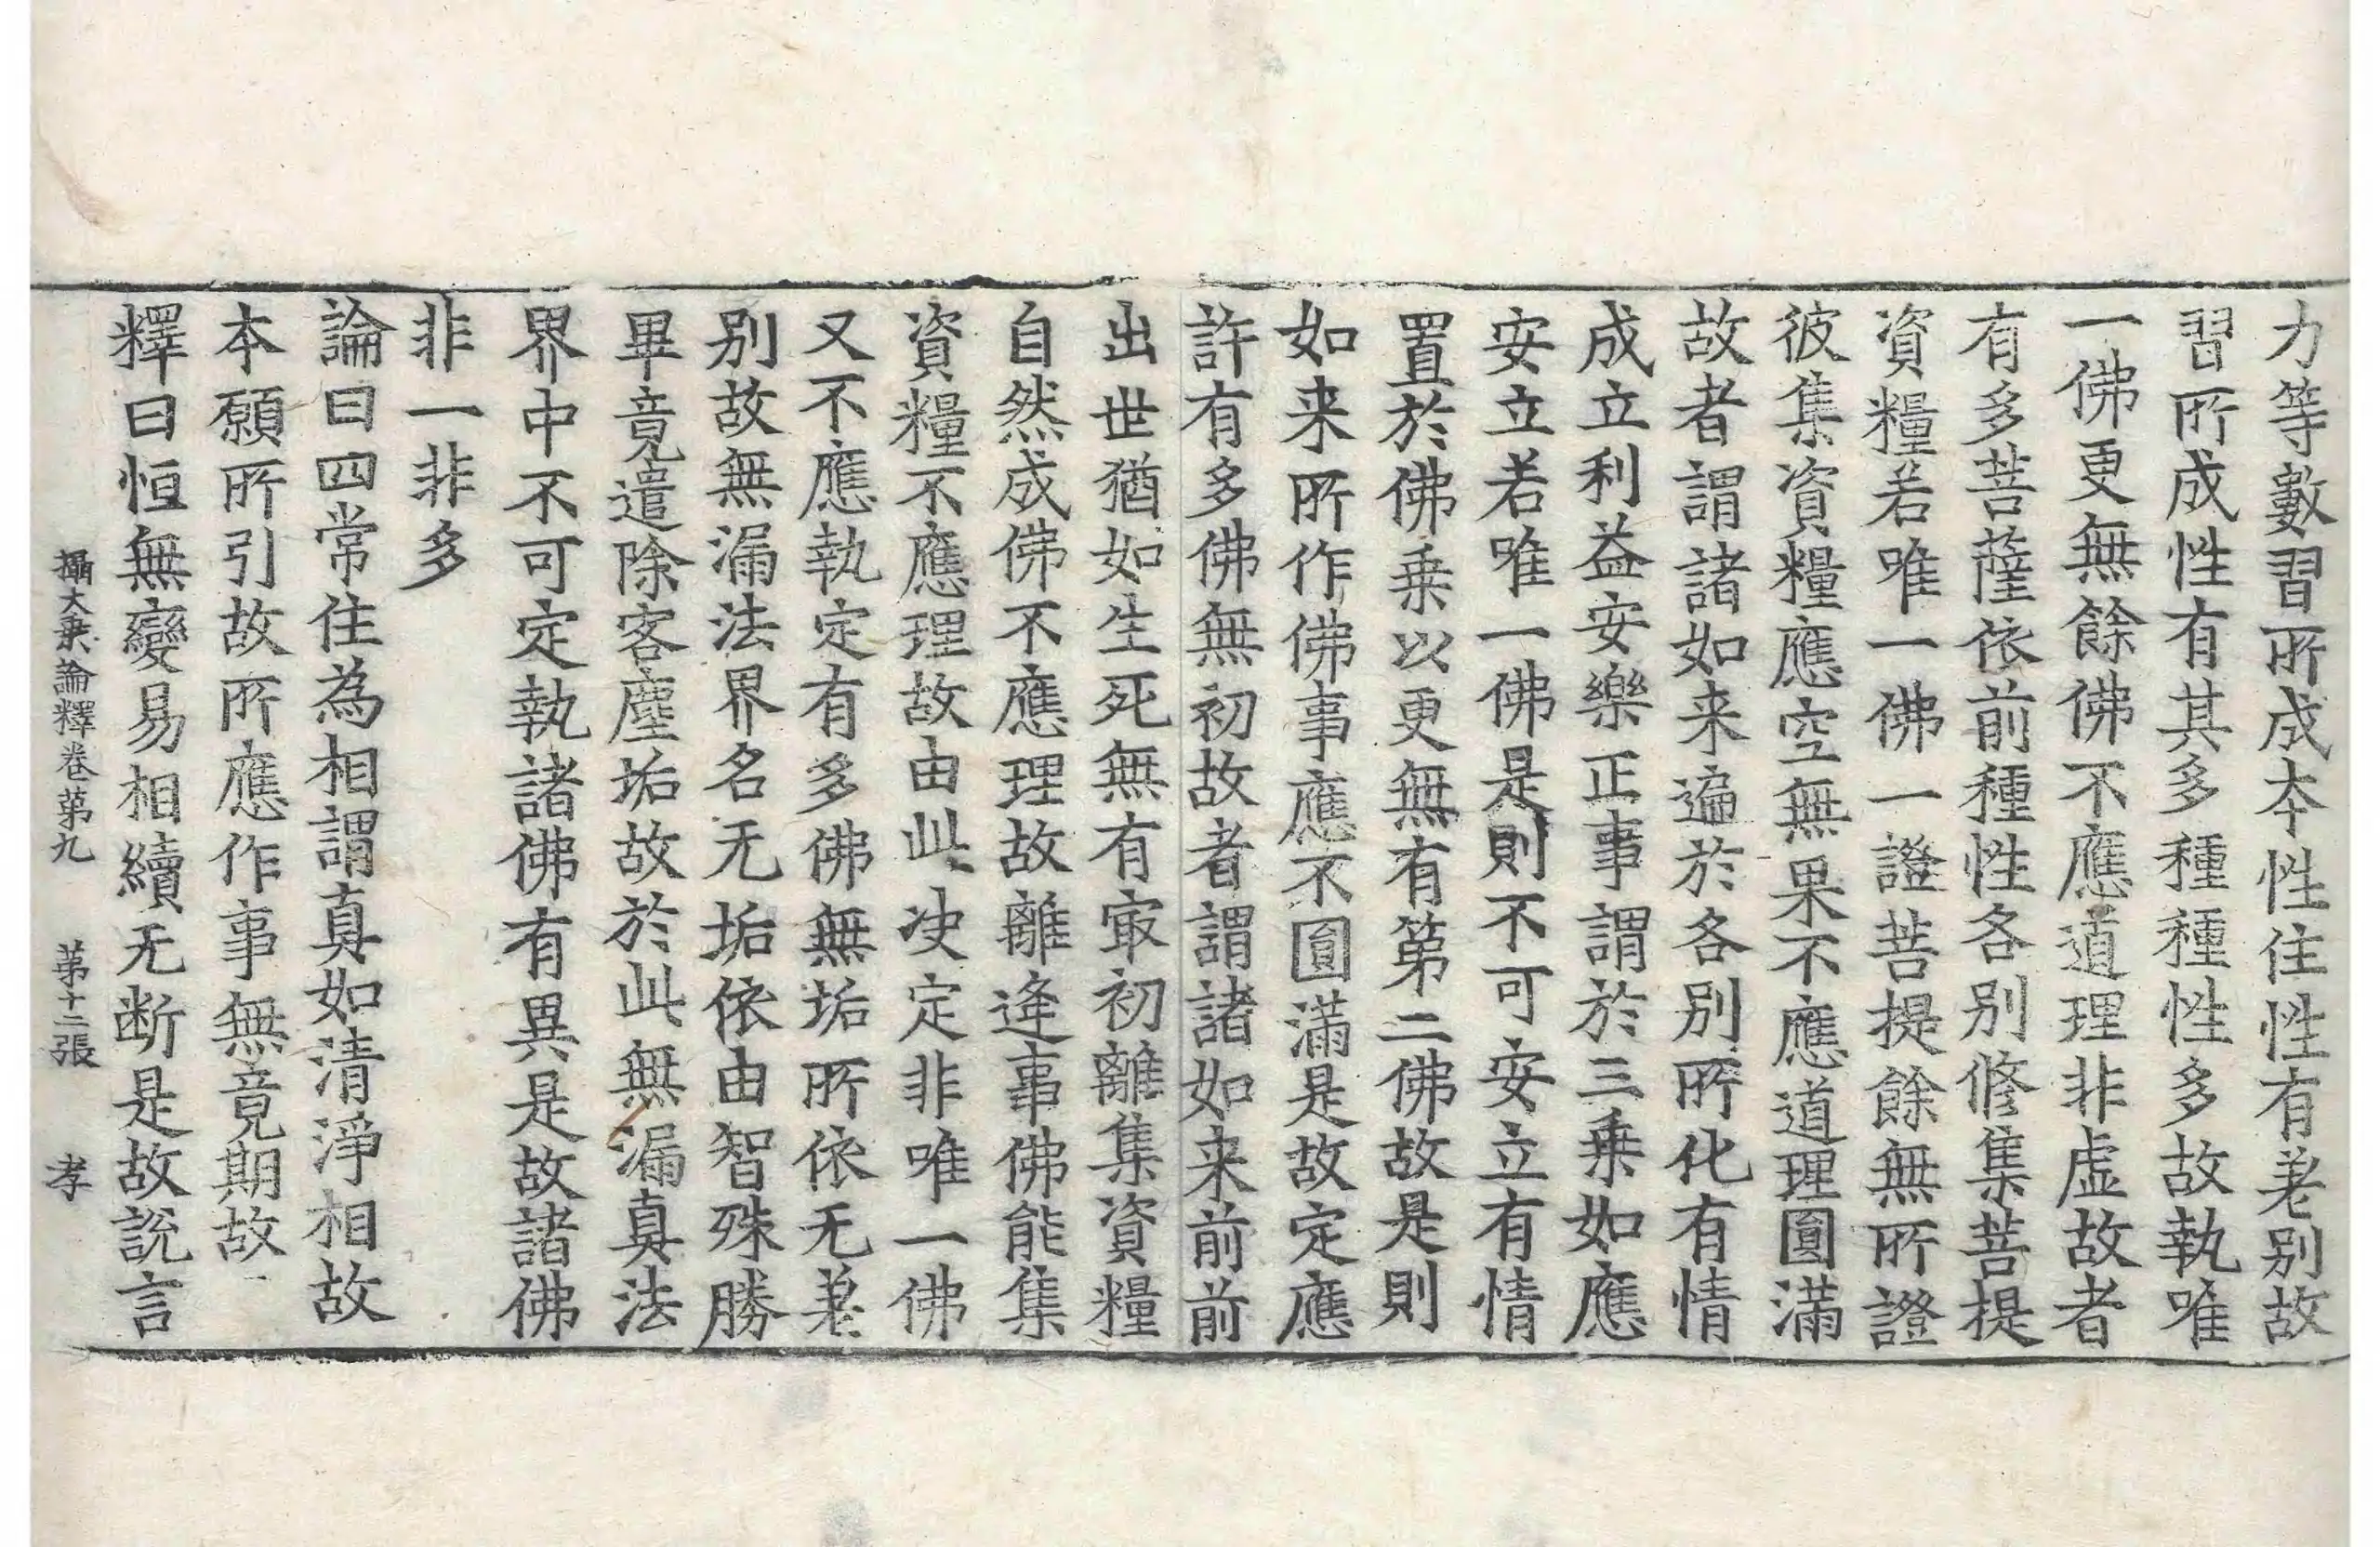 力等數習所成本性住性有差别故
習所成性有其多種種性多故執唯
一佛更無餘佛不應道理非虚故者
有多菩薩依前種性各别修集菩提
資糧若唯一佛一證菩提餘無所證
彼集資糧應空無果不應道理圓滿
故者謂諸如来遍於各别所化有情
成立利益安樂正事謂於三乗如應
安立若唯一佛是則不可安立有情
置於佛乗以更無有第二佛故是則
如来所作佛事應不圓滿是故定應
許有多佛無初故者謂諸如来前前
出世猶如生死無有㝡初離集資糧
自然成佛不應理故離逢事佛能集
資糧不應理故由此决定非唯一佛
又不應執定有多佛無垢所依无差
别故無漏法界名无垢依由智殊勝
畢竟遣除客塵垢故於此無漏真法
界中不可定執諸佛有異是故諸佛
非一非多
論曰四常住為相謂真如清淨相故
本願所引故所應作事無竟期故
釋曰恒無變易相續无断是故說言
攝大乗論釋卷苐九 苐十二張 孝